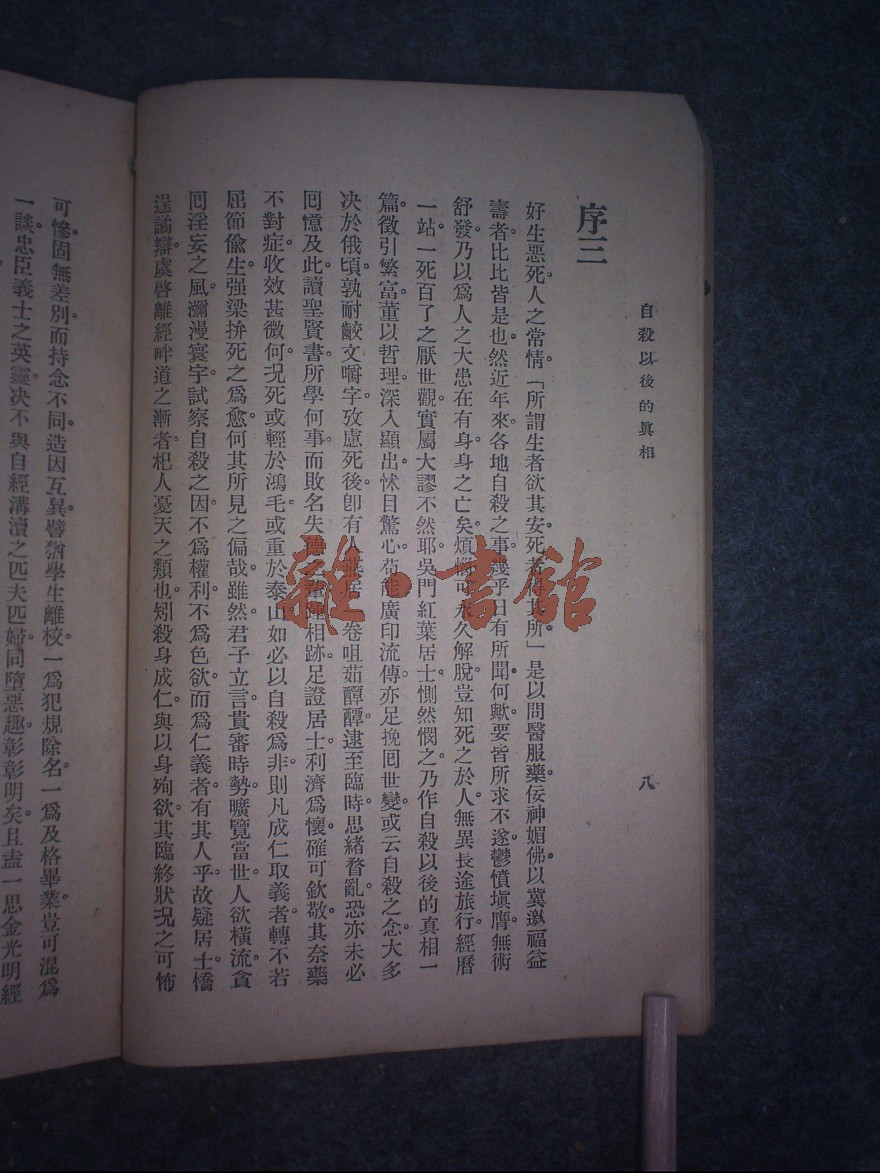 自殺以後的眞相
八
序三
好生惡死。人之常情。「所謂生者欲其安。死者得其所。」是以問醫服藥。佞神媚佛。以冀邀福益
壽者。比比皆是也。然近年來。各地自殺之事。幾乎日有所聞。何歟。要皆所求不遂。鬱憤塡膺。無術
舒發。乃以爲人之大患在有身。身之亡矣。煩惱可永久解脫。豈知死之於人。無異長途旅行。經曆
一站。一死百了之厭世觀。實屬大謬不然耶。吳門紅葉居士。惻然憫之。乃作自殺以後的真相一
篇。徵引繁富。董以哲理。深入顯出。怵目驚心。苟能廣印流傳。亦足挽回世變。或云自殺之念。大多
決於俄頃。孰耐齩文嚼字。攷慮死後。卽有人 居 卷。咀茹醰醰。逮至臨時。思緒瞀亂。恐亦未必
囘憶及此。讀聖賢書。所學何事。而敗名失德之 踵相跡。足證居士利濟爲懷。確可欽敬。其奈藥
不對症。收效甚微何。况死或輕於鴻毛。或重於泰山。如必以自殺爲非。則凡成仁取義者。轉不若
屈節偸生。强梁拚死之爲愈。何其所見之偏哉。雖然。君子立言。貴審時勢。曠覽當世。人欲橫流。貪
囘淫妄之風。瀰漫寰宇。試察自殺之因。不爲權利。不爲色欲。而爲仁義者。有其人乎。故疑居士憍
逞譎辯。虞啓離經畔道之漸者。杞人憂天之類也。矧殺身成仁。與以身殉欲。其臨終狀况之可怖
可慘。固無差別。而持念不同。造因互異。譬猶學生離校。一爲犯規除名。一爲及格畢業。豈可混爲
一談。忠臣義士之英靈。决不與自經溝瀆之匹夫匹婦。同墮惡趣。彰彰明矣。且盍一思金光明經
雜·書館